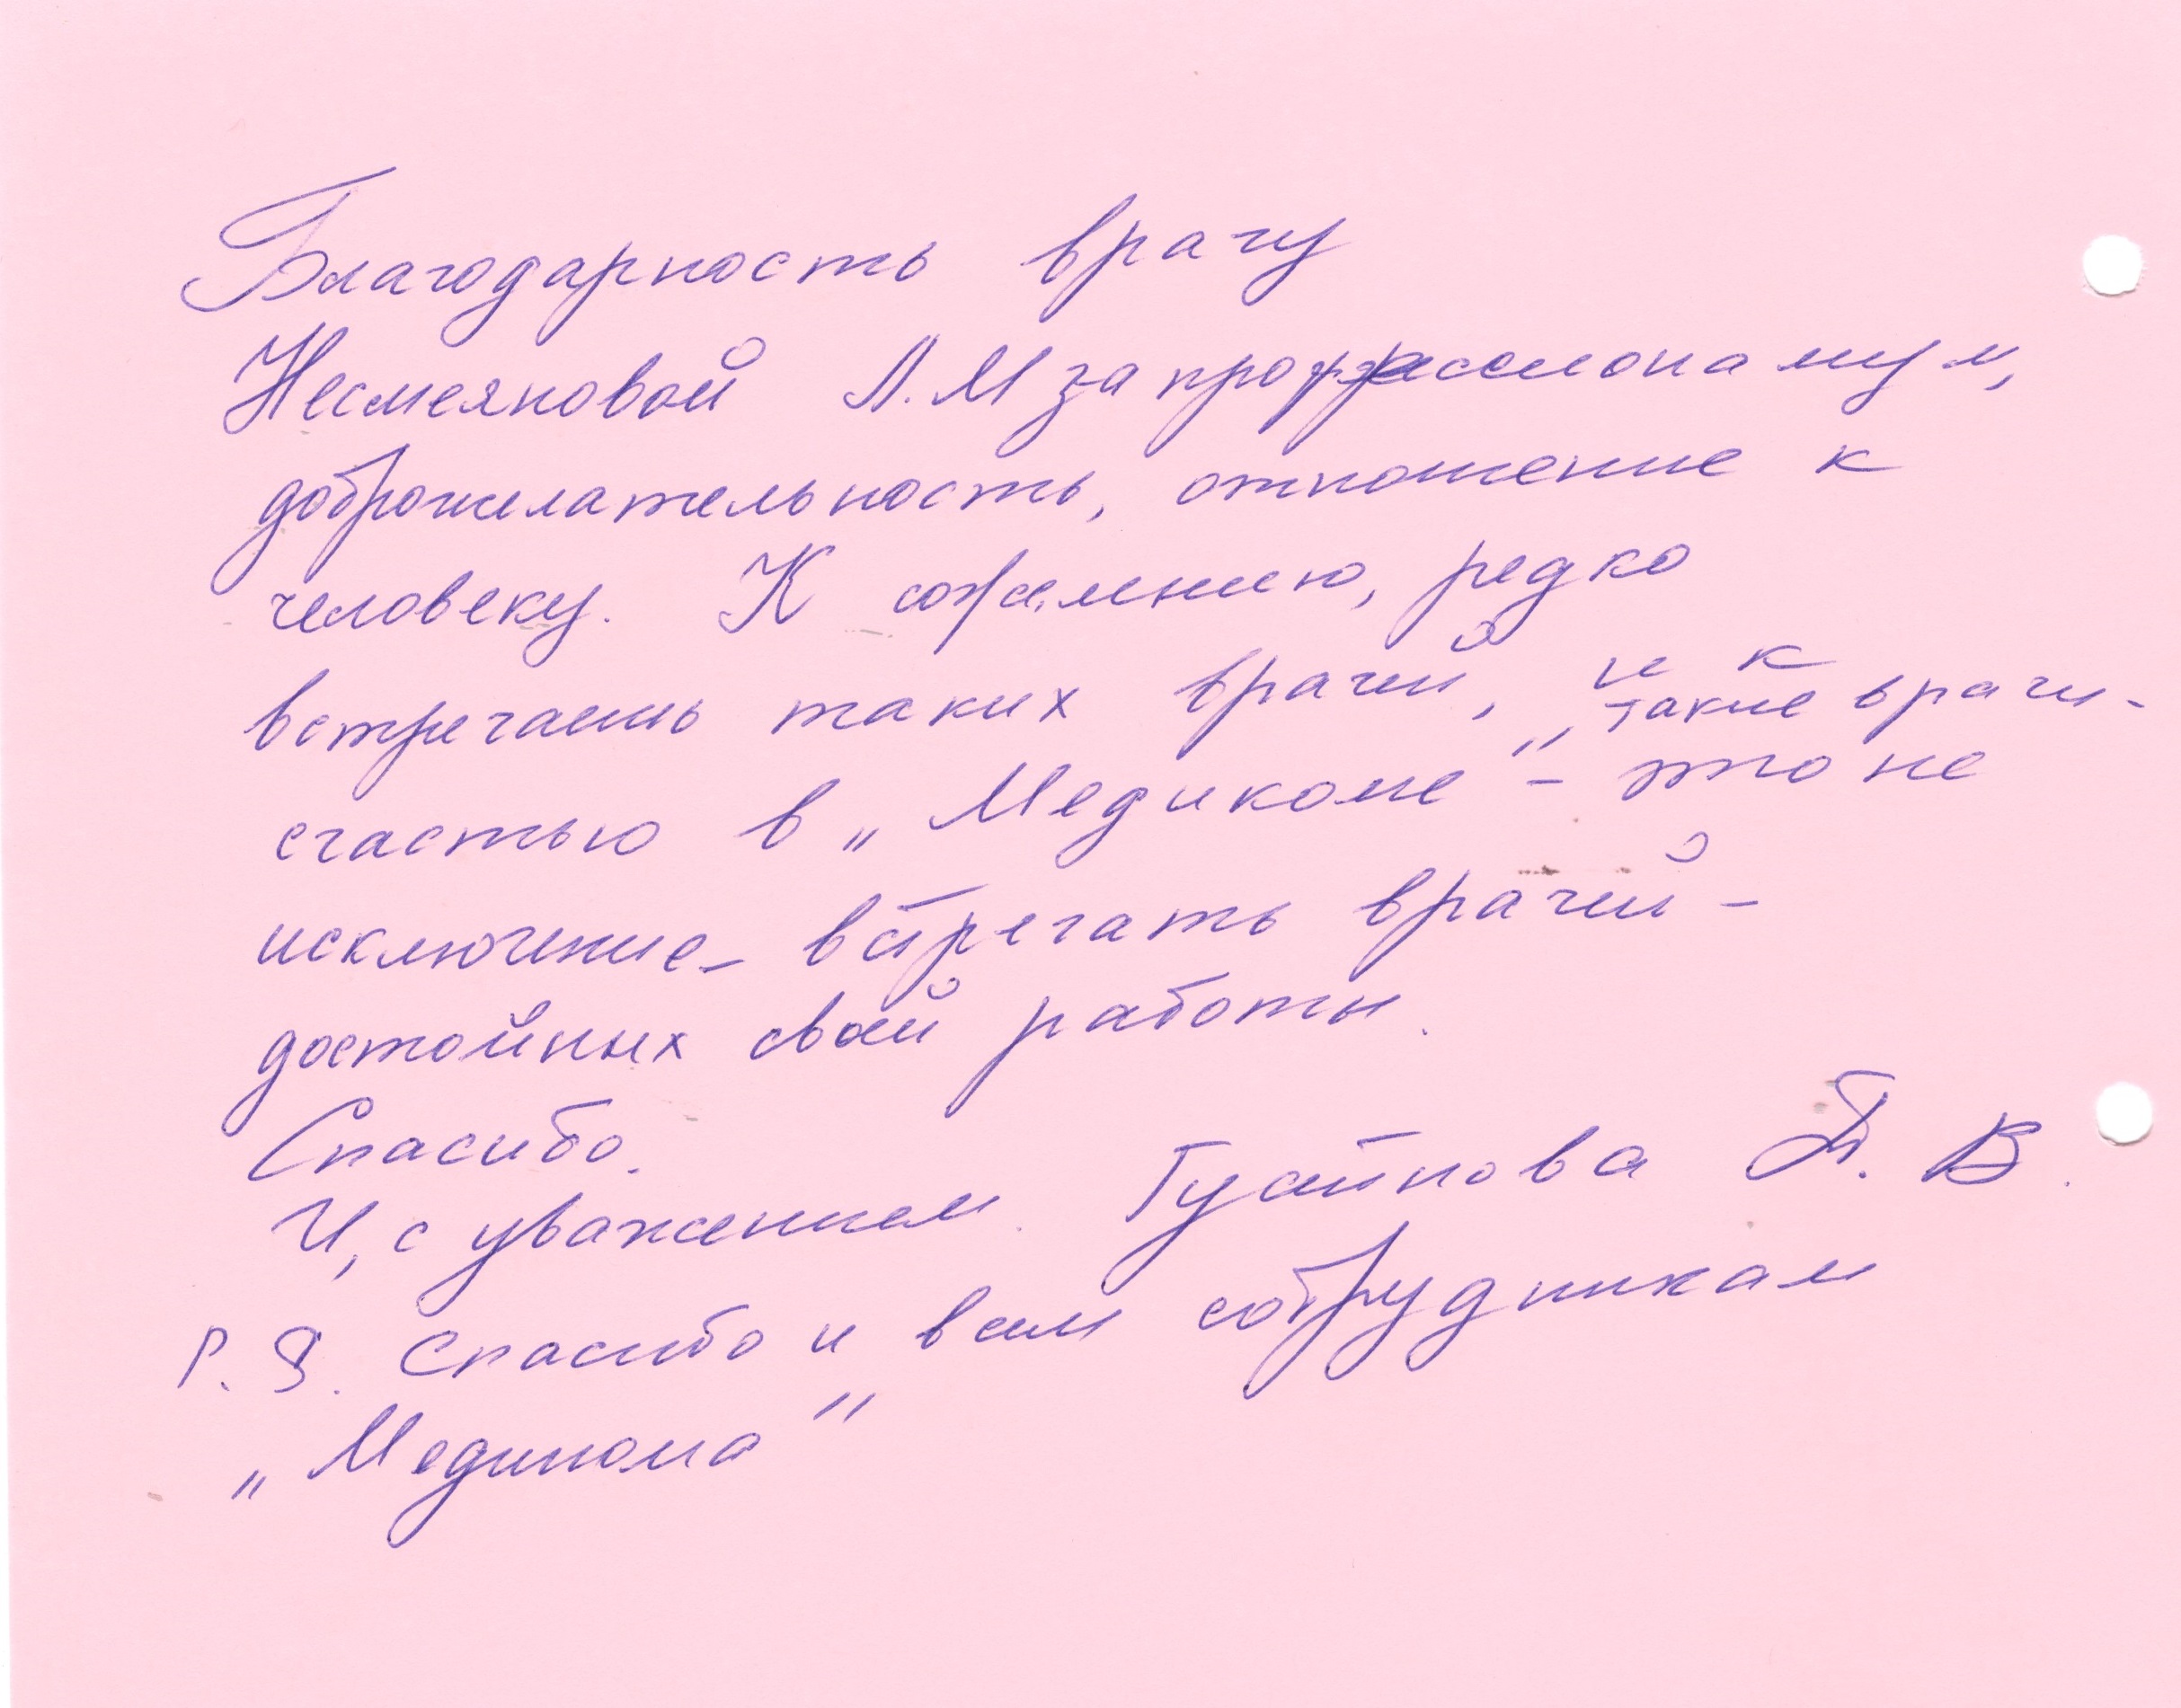 Благодарность врачу
Несмеяновой Л.М за профессионализм,
доброжелательность, отношение к
человеку. К сожалению, редко
встречаешь таких врачей, и к
счастью в „Медикоме" - такие врачи -
это не
исключение - встречать врачей -
достойных своей работы.
Спасибо.
И, с уважением. В.
P.S. Спасибо и всем сотрудникам
„Медикома"